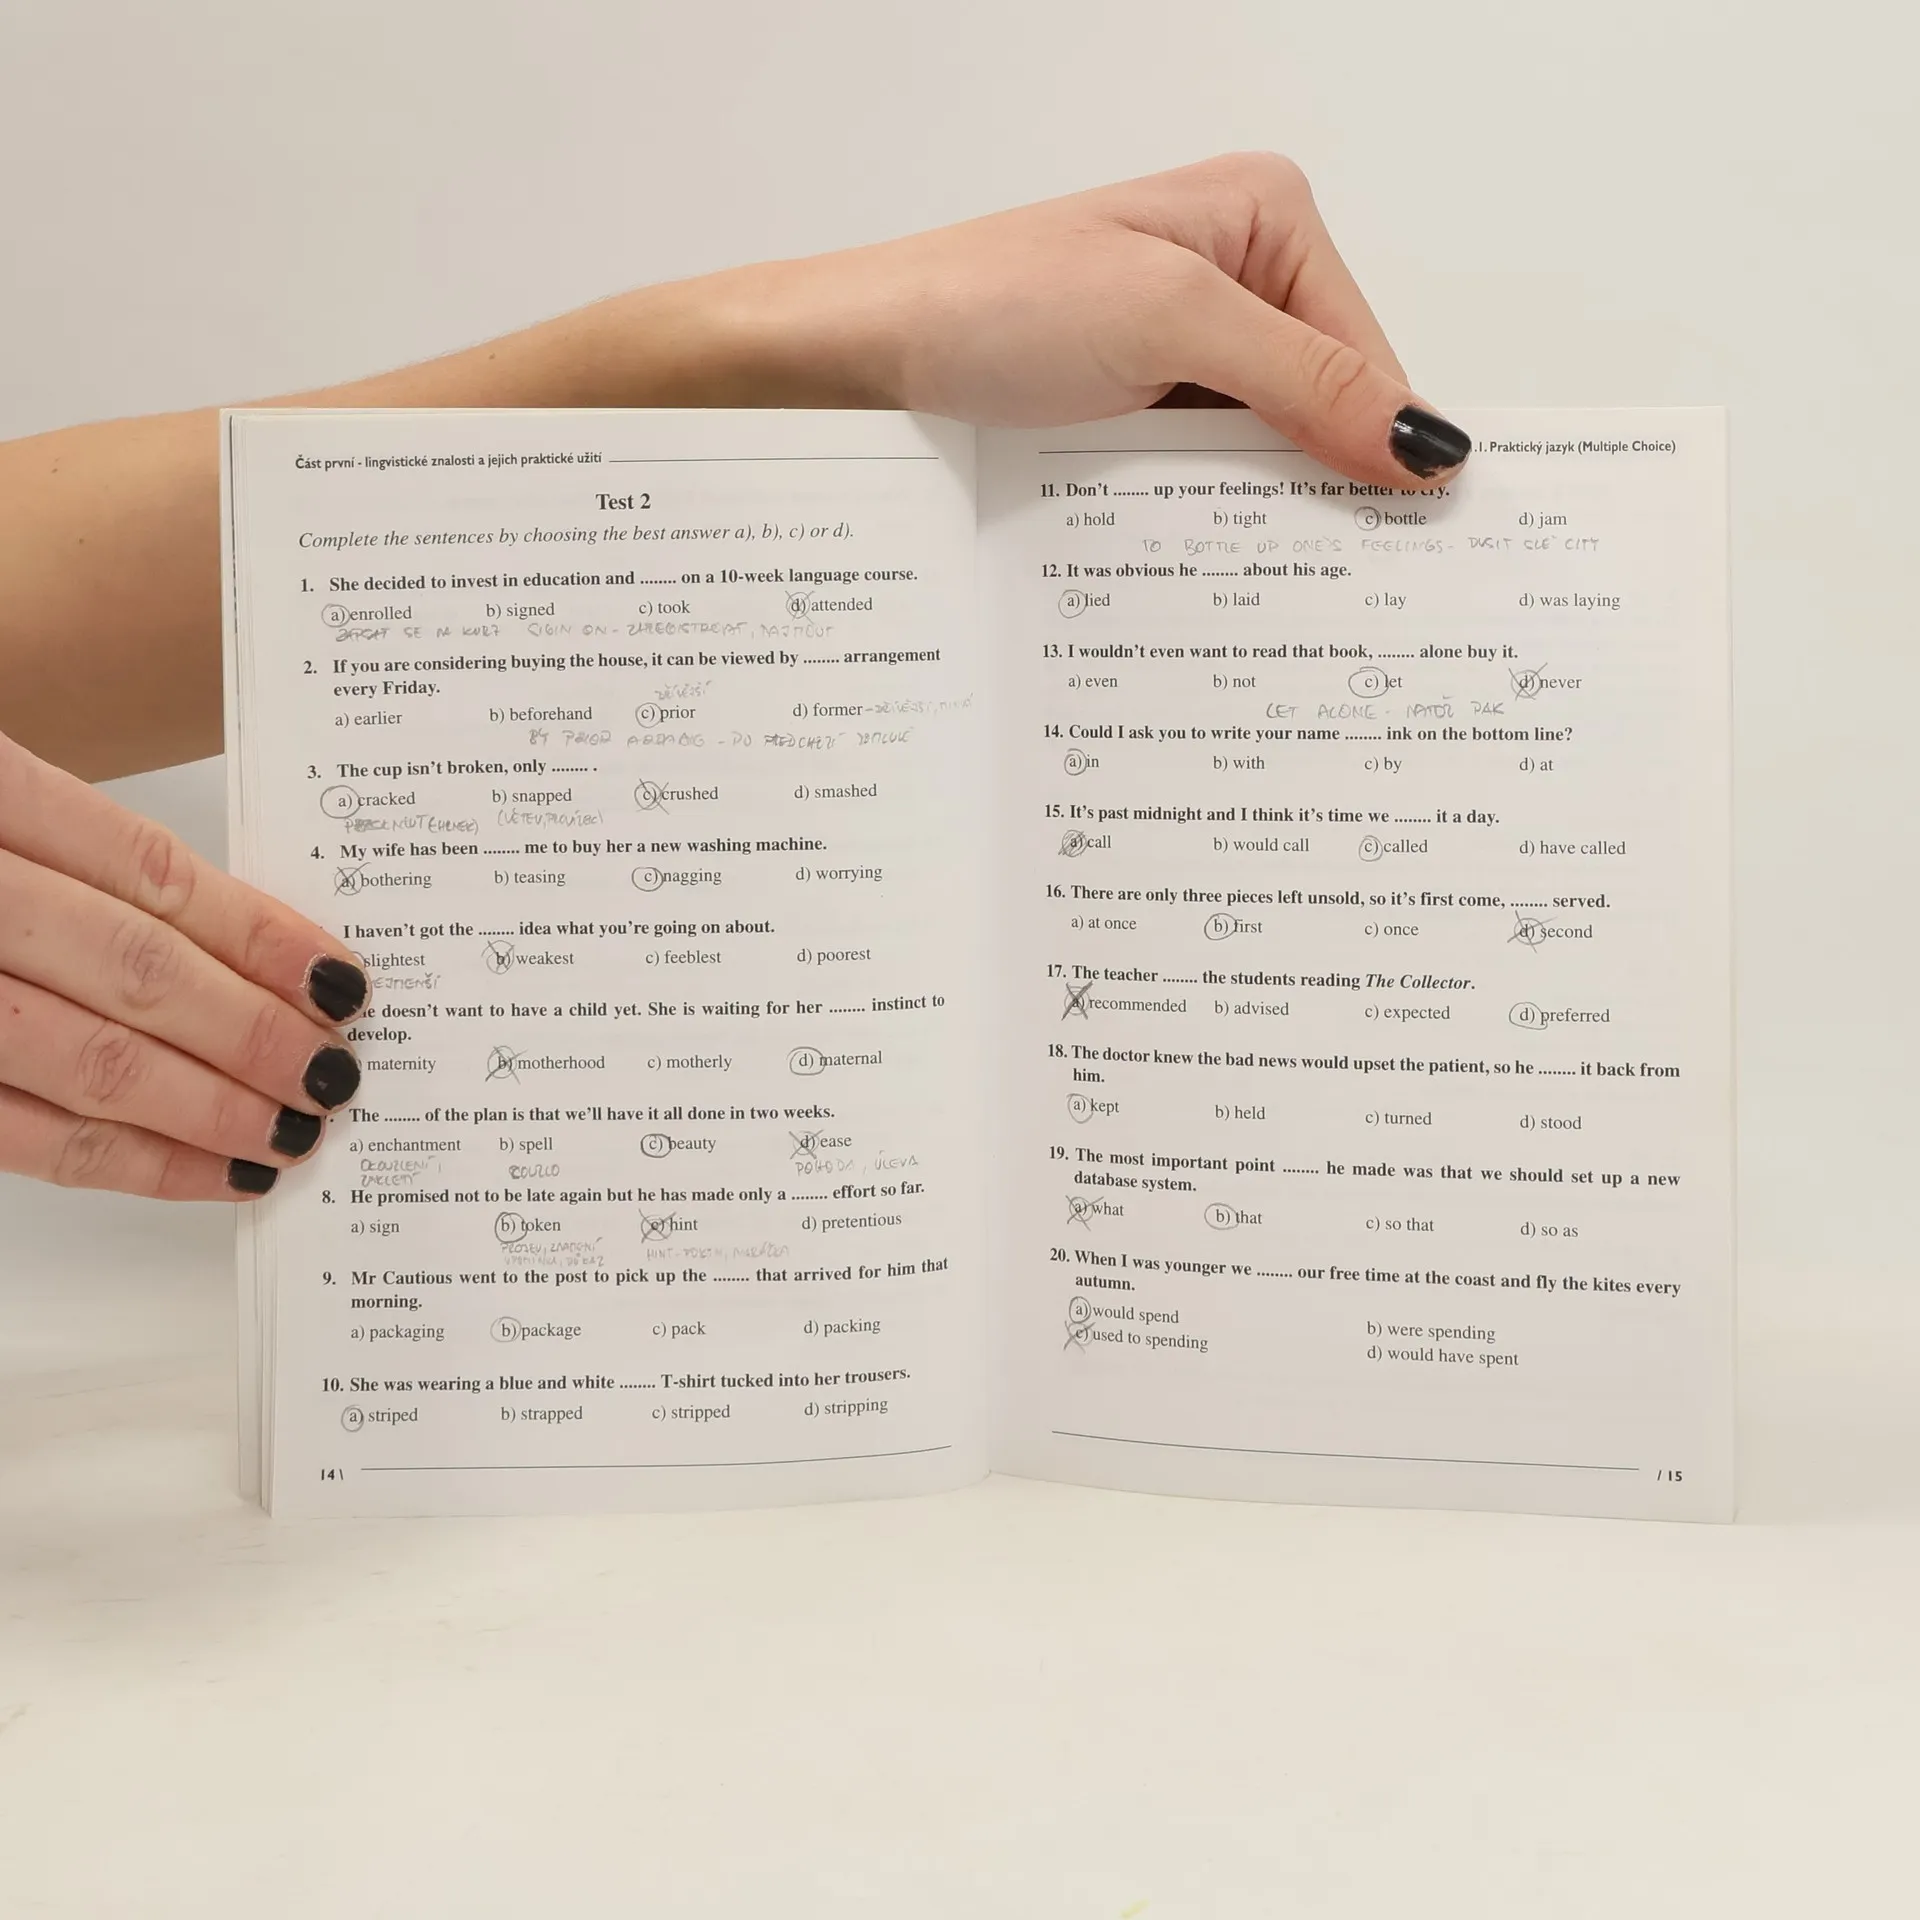 Část první - lingvistické znalosti a jejich praktické užití
Test 2
Complete the sentences by choosing the best answer a), b), c) or d).
1. She decided to invest in education and ........ on a 10-week language course.
a) enrolled b) signed c) took d) attended
ZAPSAT SE NA KURZ SIGN ON - ZAREGISTROVAT, NAJMOUT
2. If you are considering buying the house, it can be viewed by ........ arrangement
every Friday.
DŘÍVĚJŠÍ
a) earlier b) beforehand c) prior d) former - DŘÍVĚJŠÍ,
BY PRIOR - PO PŘEDCHOZÍ DOMLUVĚ
3. The cup isn't broken, only ........ .
a) cracked b) snapped c) crushed d) smashed
(HRNEK) (VĚTEV, PROVÁZEK)
4. My wife has been ........ me to buy her a new washing machine.
a) bothering b) teasing c) nagging d) worrying
I haven't got the ........ idea what you're going on about.
slightest b) weakest c) feeblest d) poorest
EJMENŠÍ
doesn't want to have a child yet. She is waiting for her ........ instinct to
develop.
maternity b) motherhood c) motherly d) maternal
The ........ of the plan is that we'll have it all done in two weeks.
a) enchantment b) spell c) beauty d) ease
OKOUZLENÍ, KOUZLO POHODA, ÚLEVA
ZAKLETÍ
8. He promised not to be late again but he has made only a ........ effort so far.
a) sign b) token c) hint d) pretentious
PROJEV, ZNAMENÍ HINT - POKYN, NARÁŽKA
UPOMÍNKA, DŮKAZ
9. Mr Cautious went to the post to pick up the ........ that arrived for him that
morning.
a) packaging b) package c) pack d) packing
10. She was wearing a blue and white ........ T-shirt tucked into her trousers.
a) striped b) strapped c) stripped d) stripping
14 \
.1. Praktický jazyk (Multiple Choice)
11. Don't ........ up your feelings! It's far better to cry.
a) hold b) tight c) bottle d) jam
TO BOTTLE UP ONE'S FEELINGS - DUSIT SVÉ CITY
12. It was obvious he ........ about his age.
a) lied b) laid c) lay d) was laying
13. I wouldn't even want to read that book, ........ alone buy it.
a) even b) not c) let d) never
LET ALONE - NATOŽ PAK
14. Could I ask you to write your name ........ ink on the bottom line?
a) in b) with c) by d) at
15. It's past midnight and I think it's time we ........ it a day.
a) call b) would call c) called d) have called
16. There are only three pieces left unsold, so it's first come, ........ served.
a) at once b) first c) once d) second
17. The teacher ........ the students reading The Collector.
a) recommended b) advised c) expected d) preferred
18. The doctor knew the bad news would upset the patient, so he ........ it back from
him.
a) kept b) held c) turned d) stood
19. The most important point ........ he made was that we should set up a new
database system.
a) what b) that c) so that d) so as
20. When I was younger we ........ our free time at the coast and fly the kites every
autumn.
a) would spend b) were spending
c) used to spending d) would have spent
/ 15